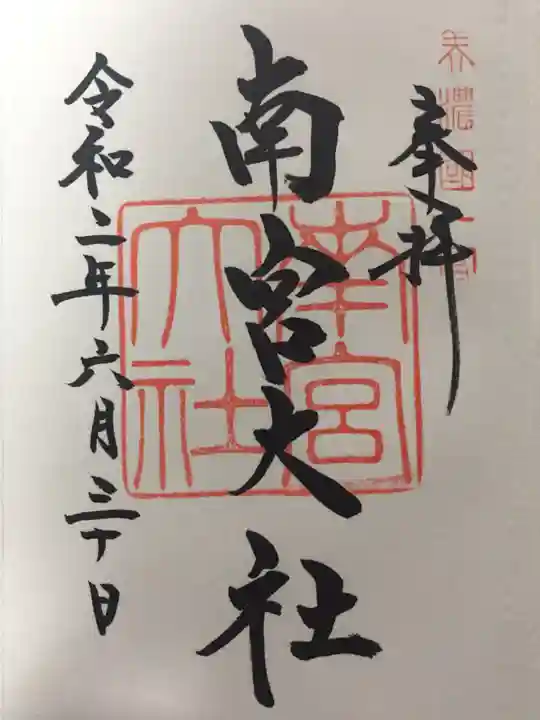 美濃國一宮
奉拝
南宮大社
南宮大社
令和二年六月三十日